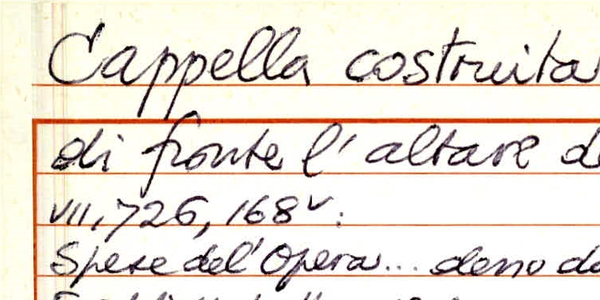 Cappella costruita
di fronte l'altare de
VII, 726, 168v:
Spese del'Opera... deno da